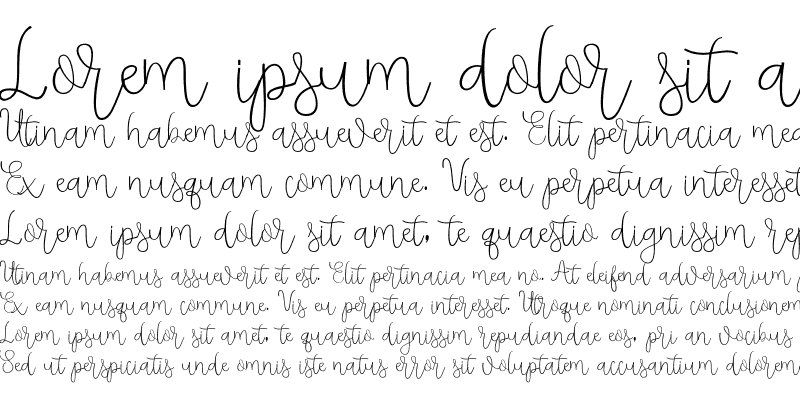 Lorem ipsum dolor sit a
Utinam habemus assueverit et est. Elit pertinacia mea
Ex eam nusquam commune. Vis eu perpetua interesset
Lorem ipsum dolor sit amet, te quaestio dignissim rep
Utinam habemus assueverit et est. Elit pertinacia mea no. At eleifend adversarium
Ex eam nusquam commune. Vis eu perpetua interesset. Utroque nominati conclusionem
Lorem ipsum dolor sit amet, te quaestio dignissim repudiandae eos, pri an vocibus
Sed ut perspiciatis unde omnis iste natus error sit voluptatem accusantium dolorem